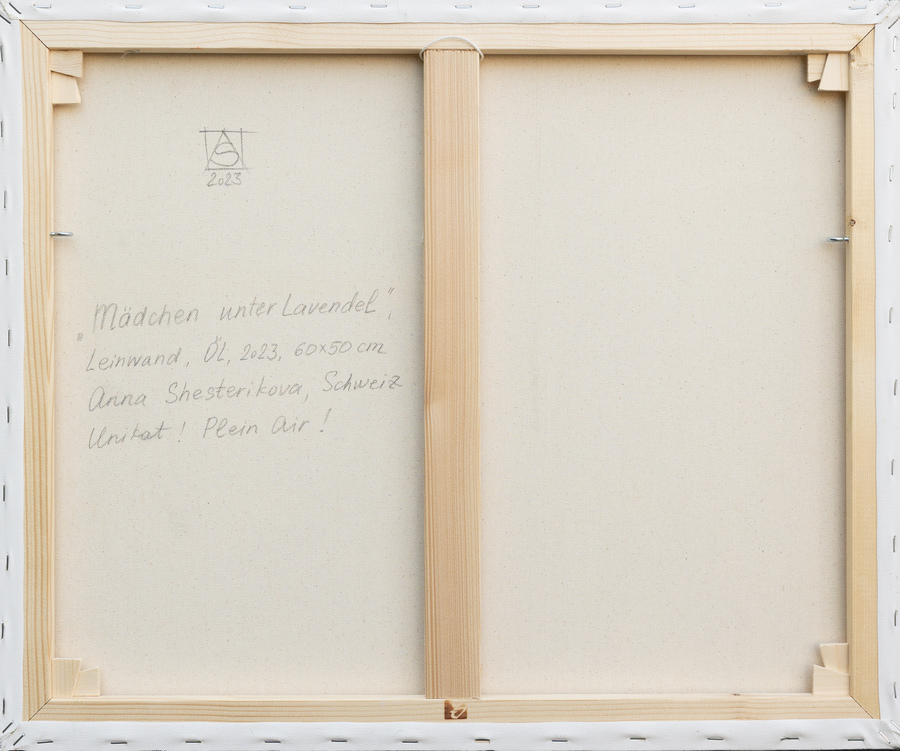 AS
2023
„Mädchen unter Lavendel“,
Leinwand, Öl, 2023, 60x50 cm
Anna Shesterikova, Schweiz
Unikat! Plein Air!